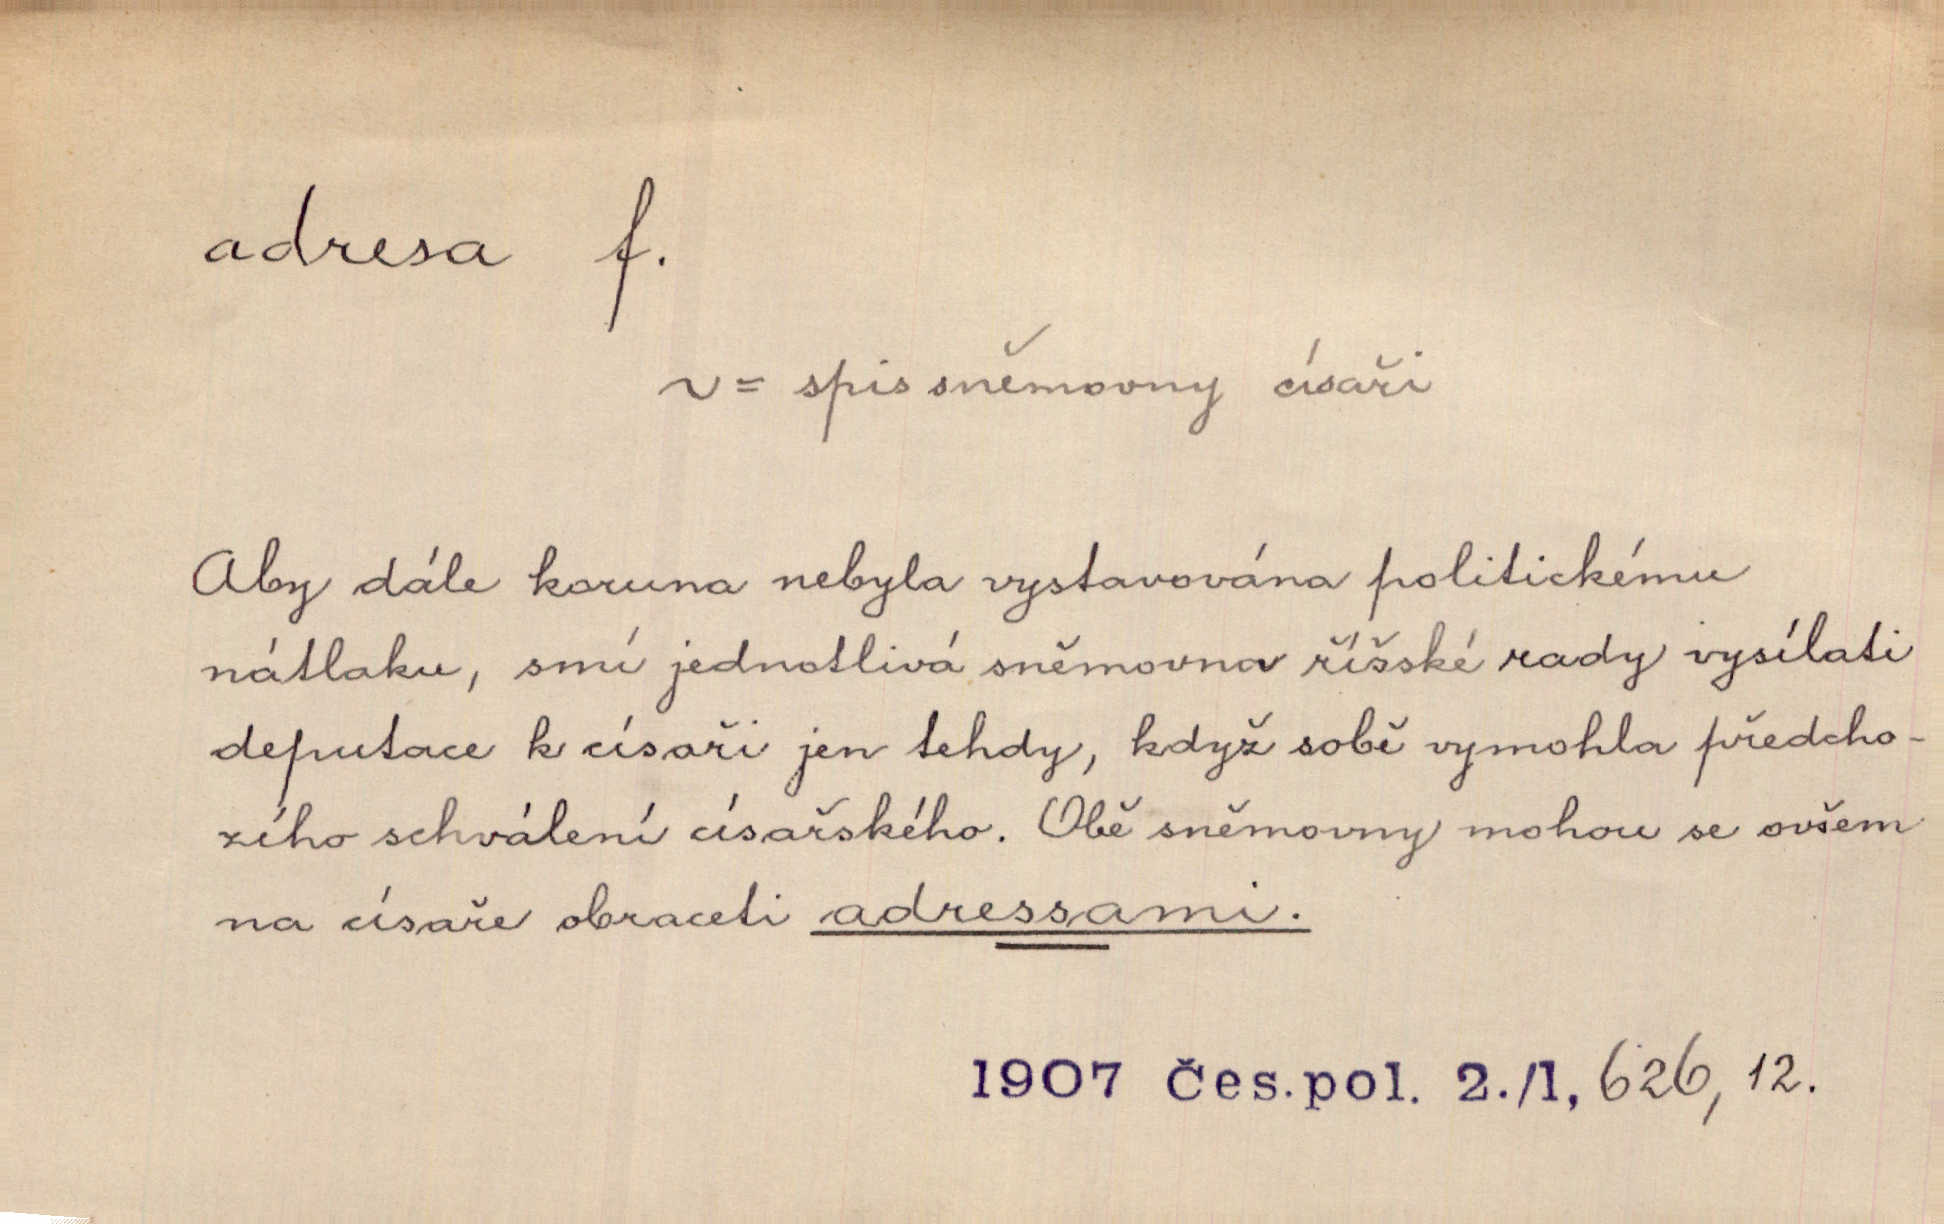 adresa f.
v = spis sněmovny císaři
Aby dále koruna nebyla vystavována politickému
nátlaku, smí jednotlivá sněmovna říšské rady vysílati
deputace k císaři jen tehdy, když sobě vymohla předcho-
zího schválení císařského. Obě sněmovny mohou se ovšem
na císaře obraceti adressami.
1907 Čes.pol. 2./1, 626, 12.